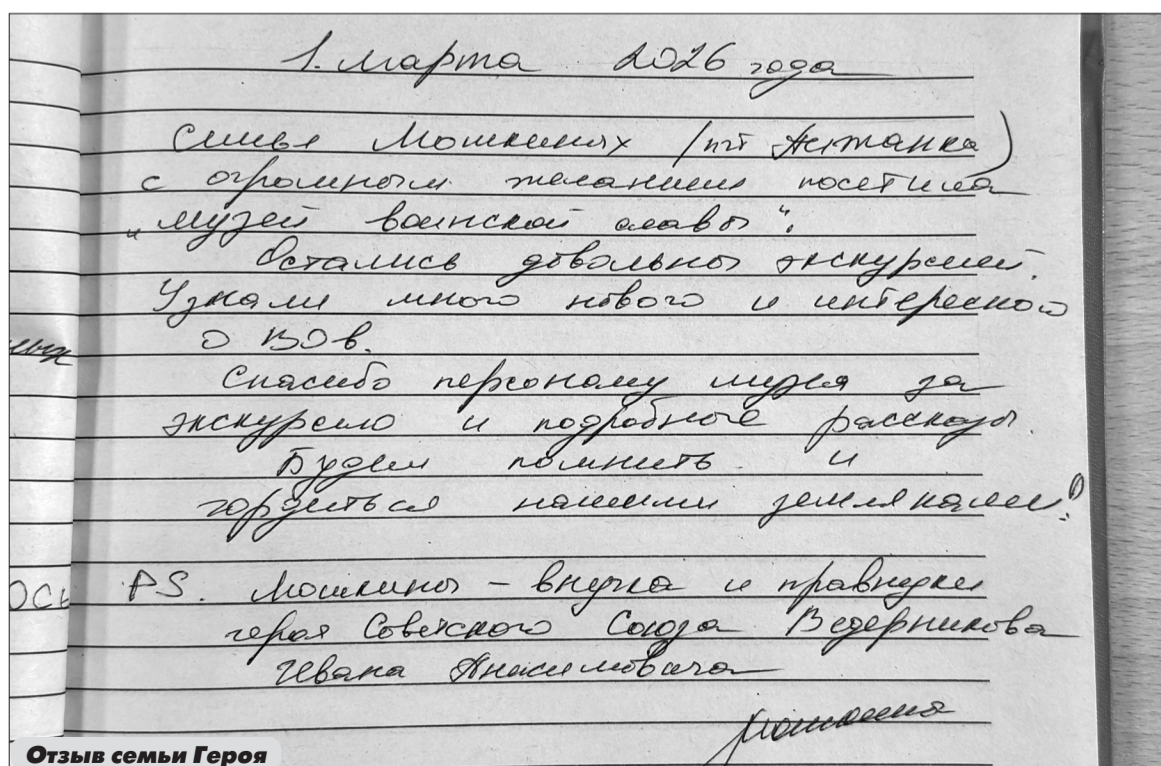 1. марта 2026 года
Семья Мошкиных (пгт Актанка)
с огромным желанием посетила
„музей воинской славы“.
Остались довольны экскурсией.
Узнали много нового и интересного
о ВОв.
Спасибо персоналу музея за
экскурсию и подробные рассказы.
Будем помнить и
гордиться нашими земляками!
PS. Мошкины – внучка и правнуки
героя Советского Союза Ведерникова
Ивана Анисимовича
Мошкина
Отзыв семьи Героя